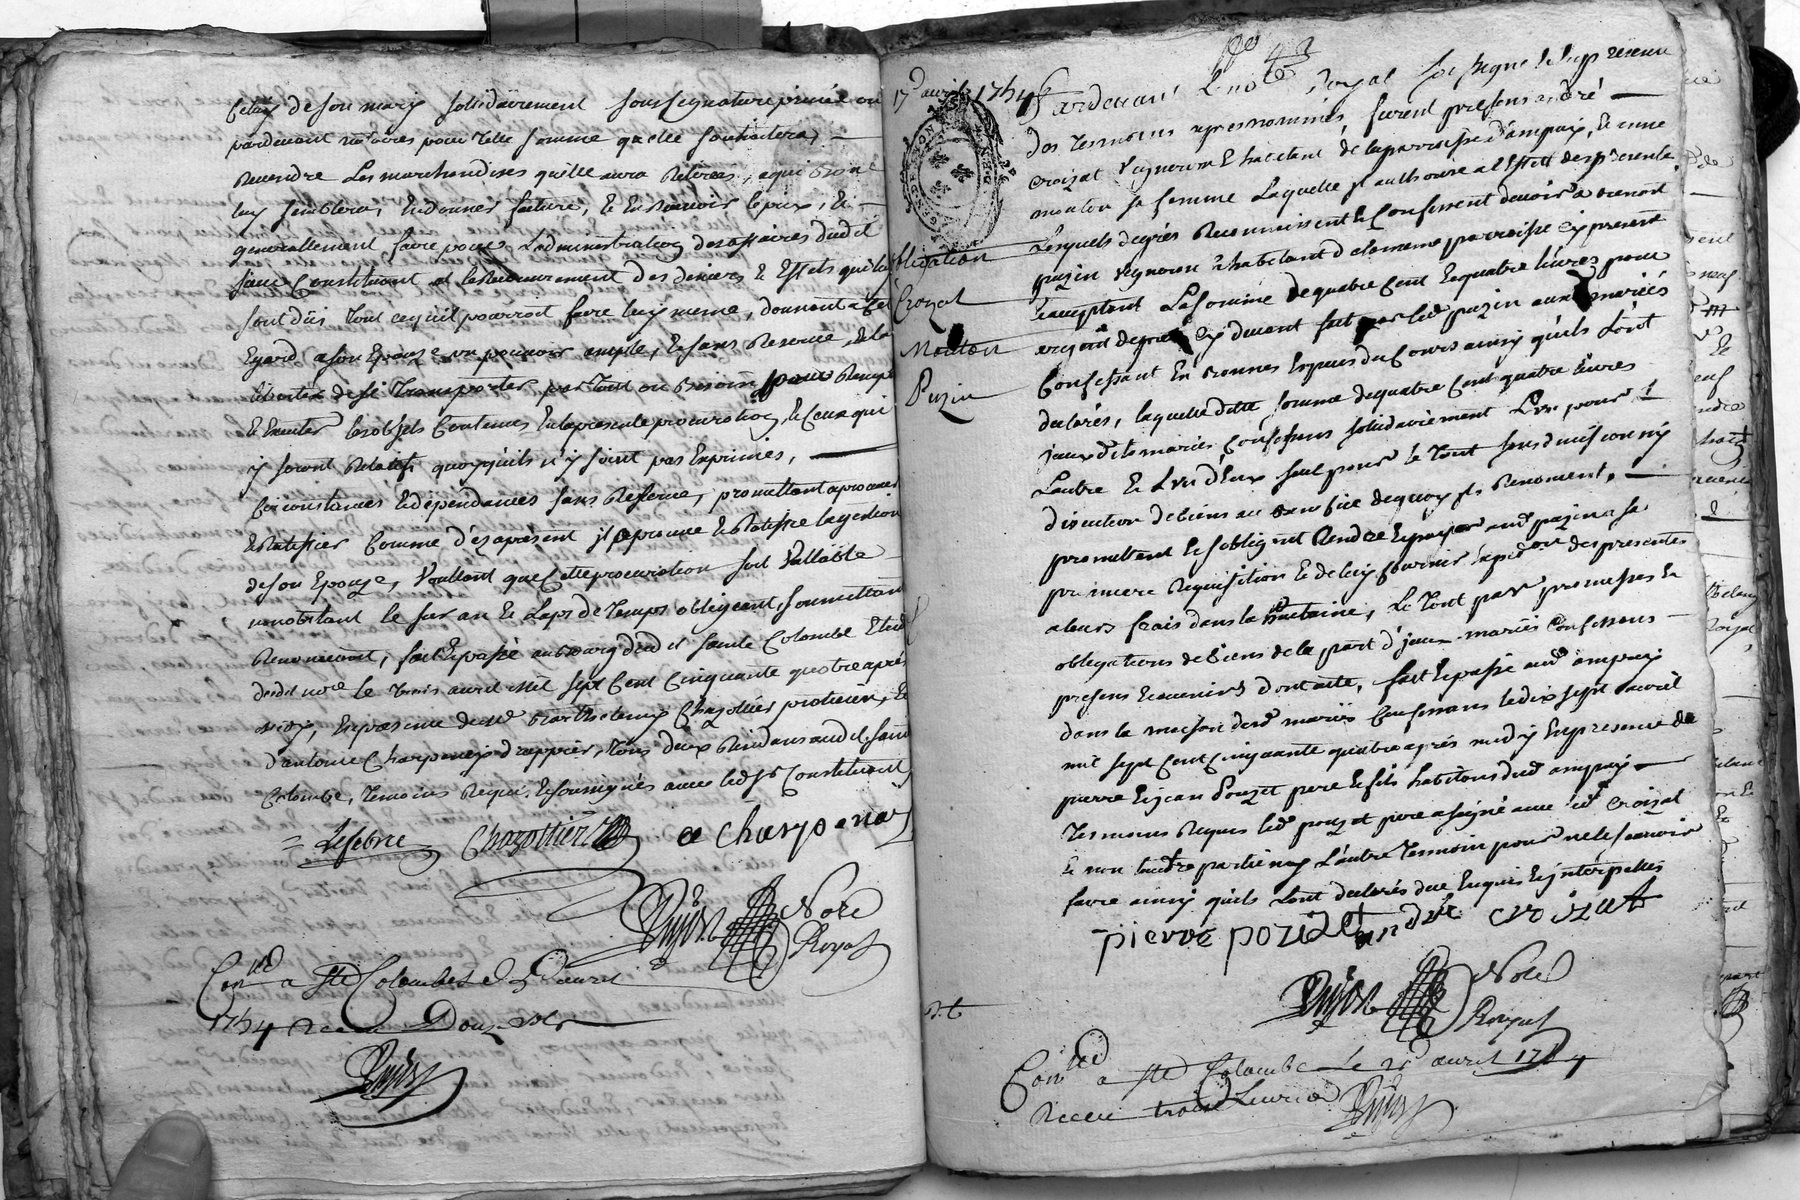 Celuy de son mary sollidairement sous signature privée ou
pardevant notaires pour telle somme quelle souhaitera,
Revendre Les marchandises quelle aura Retirées, a qui bon
luy semblera, En donner facture, & En Recevoir le prix, &
generallement faire pour L'administration des affaires dudit
sieur Constituant et le Recouvrement des deniers & Effets qui luy
sont dûs tout ce qu'il pourroit faire luy meme, donnant a cet
Egard a son Epouze un pouvoir ample, & sans Reserve, de la
liberté de se Transporter par tout ou besoin pour
& Executer les objets Contenus En la presente procuration, & Ceux qui
y seront Relatifs quoyqu'ils n'y soint pas Exprimés,
Circonstances & dependances sans Reserve, promettant aprouver
& Ratiffier Comme d'ez aprésent il aprouve & Ratiffie la gestion
de son Epouze, Voullant que Cette procuration soit Vallable
nonobstant le sur an & Laps de Temps obligeant, soumettant
Renonceant, fait & passé au bourg dud it sainte Colombe Etude
dudit nore le trois avril Mil sept Cent Cinquante quatre aprés
midy, En presence de sr Barthelemy Chazottier
d'antoine Charpenay drappier, tous deux Residans aud it sainte
Colombe, temoins Requis & soussignés avec led sr Constituant
Lefebvre Chazottier a Charpenay
Nore
Royal
Conlé a Ste Colombe le 5 avril
1754 Receu Douze sols
No 43
17 avril 1754 Pardevant Le note Royal soussigné & En presence
des temoins apres nommés, furent presens andré
croizat Vigneron & habitant de la parroisse d'ampuis, & anne
mouton sa femme Laquelle il authorise a l'Effet des presentes
Lesquels de grés Reconnaissent & Confessent devoir a benoit
Obligation
puzin vigneron & habitant de la meme parroisse Cy present
Crozat
& acceptant La somme de quatre Cent & quatre livres pour
Mouton
Cy devant fait par led puzin auxd mariés
Puzin
Confessant En bonnes Espèces du Cours ainsy qu'ils L'ont
declarés, laquelle ditte somme de quatre Cent quatre livres
jceux dits mariés Confessans sollidairement L'un pour
Lautre & L'un d'Eux seul pour le tout sans division ny
discution de biens au benefice de quoy ils Renoncent,
promettent & s'obligent Rendre & payer aud puzin a sa
premiere Requisition & de luy fournir expedon des presentes
a leurs frais dans la huitaine, Le tout par promesses &
obligations de biens de la part d'jceux mariés Confessans
presens & avenirs dont acte, fait & passé aud ampuis
dans la maison desd mariés Confessans le dix sept avril
mil sept Cent Cinquante quatre aprés midy En presence de
pierre & jean Pouzet pere & fils habitans dud ampuis
temoins Requis led pouzet pere a signé avec led Croizat
& non laditte partie ny L'autre temoin pour ne le sçavoir
faire ainsy quils L'ont declarés de ce Enquis & interpellés
pierre pouzet andré croizat
Nore
Royal
Conlé a Ste Colombe Le avril 1754
Receu trois Livres